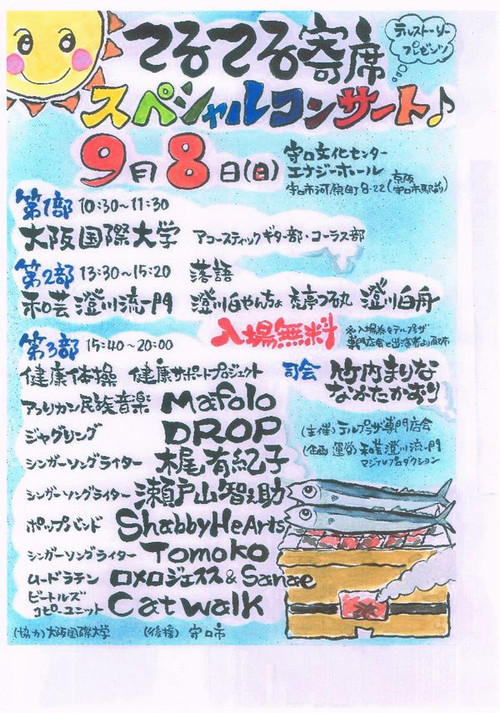 てるてる寄席
テルストーリー
プレゼンツ
スペシャルコンサート♪
9月8日(日)
守口文化センター
エナジーホール
守口市河原町8-22(京阪守口市駅前)
第1部 10:30~11:30
大阪国際大学 アコースティックギター部・コーラス部
第2部 13:30~15:20 落語
和芸 澄川流一門 澄川白やんちょ 亭つる丸 澄川白舟
入場無料
第3部 15:40~20:00
健康体操 健康サポートプロジェクト
司会 竹内まりな
なかたかおり
アフリカン民族音楽 Mafolo
ジャグリング DROP
(主催)テルプラザ専門店会
(企画運営)和芸澄川流一門
マジカルプロダクション
シンガーソングライター 梶有紀子
シンガーソングライター 瀬戸山智之助
ポップバンド ShabbyHeArts
シンガーソングライター Tomoko
ムードラテン ロメロジェスス&Sanae
ビートルズ
コピーユニット Catwalk
(協力)大阪国際大学 (後援) 守口市